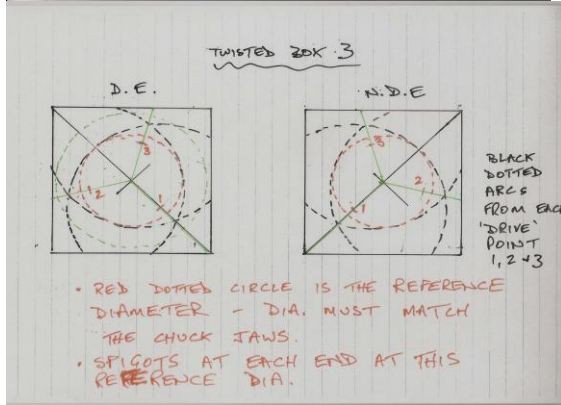 TWISTED BOX 3
D.E.
N.D.E
3
2
1
3
2
1
BLACK
DOTTED
ARCS
FROM EACH
'DRIVE'
POINT
1, 2 & 3
• RED DOTTED CIRCLE IS THE REFERENCE
DIAMETER - DIA. MUST MATCH
THE CHUCK JAWS.
• SPIGOTS AT EACH END AT THIS
REFERENCE DIA.